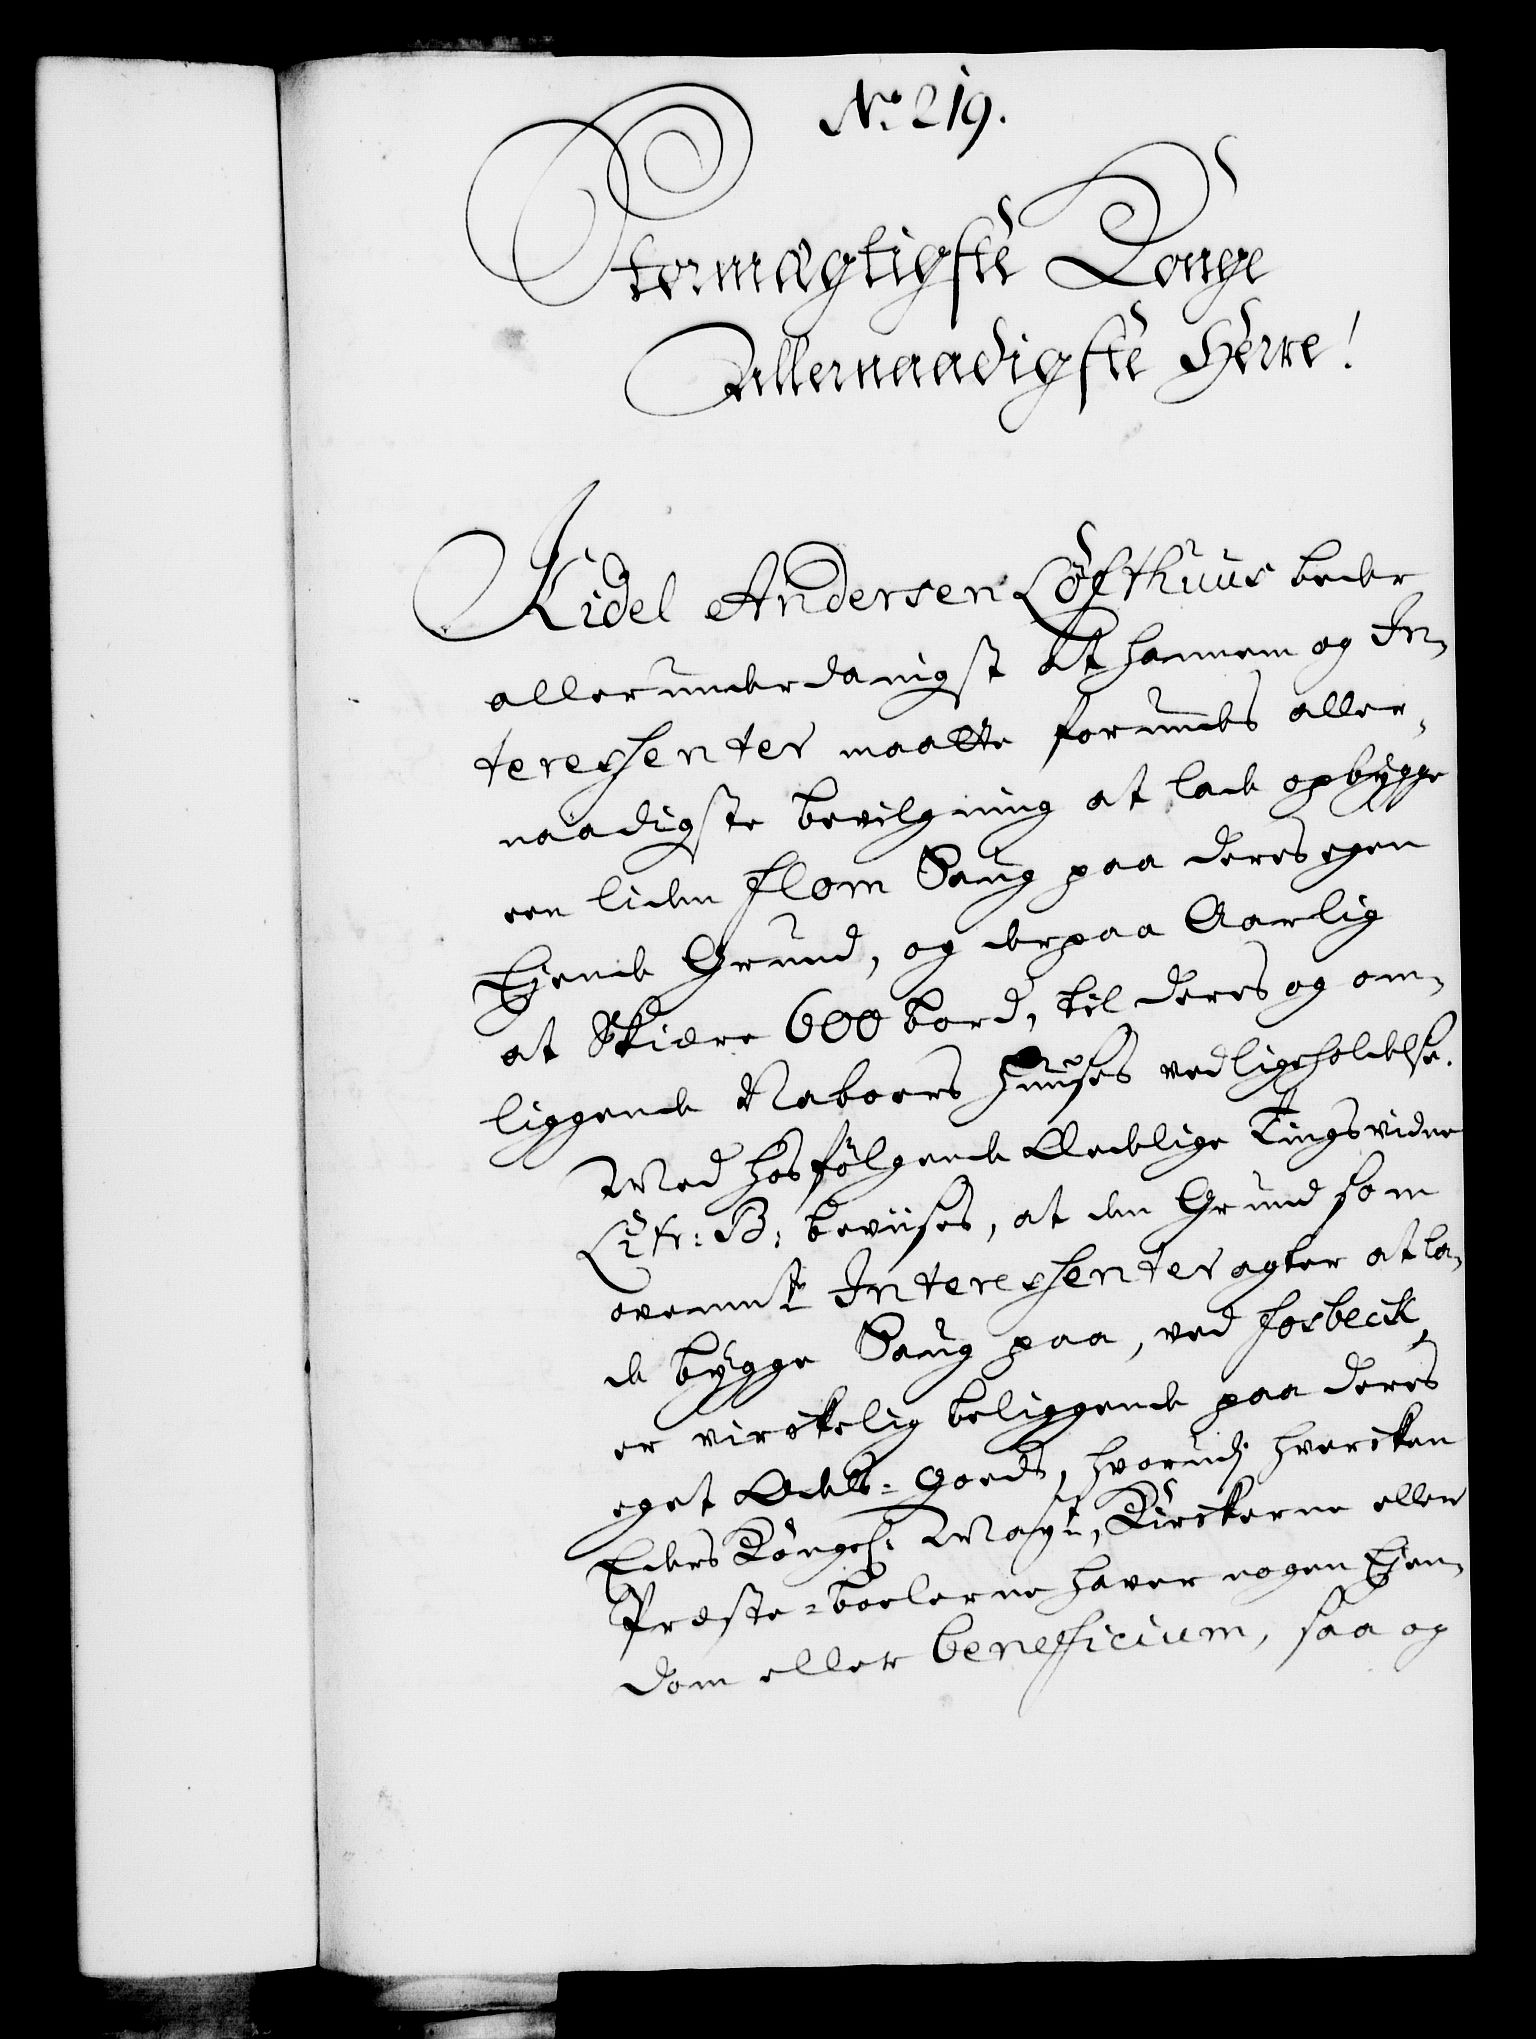 No. 219.
Stormægtigste Konge
Allernaadigste Herre!
Kidel Andersen Löfthuus beder
allerunderdanigst at hannem og In-
teressenter maatte forundes aller-
naadigste bevilgning at lade opbygge
een liden flom Saug paa deres egen
Ejende Grund, og derpaa Aarlig
at Skiære 600 bord, til deres og om-
liggende Naboers huuses vedligeholdelse.
Med hosfölgende Lovlige Tingsvidne
Litr: B: beviises, at den Grund som
ovennte Interessenter agter at la-
de bygge Saug paa, ved fosbeck,
er virckelig beliggende paa deres
eget Odels-Goeds, hvorudj hvercken
Eders Kongel: Mayt, Kirckerne eller
Præste-boelerne haver nogen Ejen-
dom eller beneficium, saa og